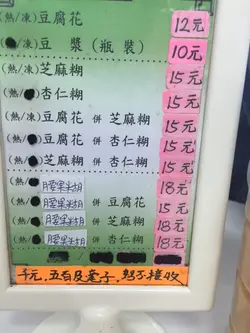 (熱/凍) 豆腐花 12元
/凍) 豆 漿 (瓶 裝) 10元
(熱/凍) 芝麻糊 15元
(熱/ 杏仁糊 15元
(熱/凍) 豆腐花 併 芝麻糊 15元
(熱/ 豆腐花 併 杏仁糊 15元
(熱/ 芝麻糊 併 杏仁糊 15元
(熱/ 腰果糊 18元
(熱/ 腰果糊 併 豆腐花 15元
(熱/ 腰果糊 併 芝麻糊 18元
(熱/ 腰果糊 併 杏仁糊 18元
千元,五百及毫子,恕不接收